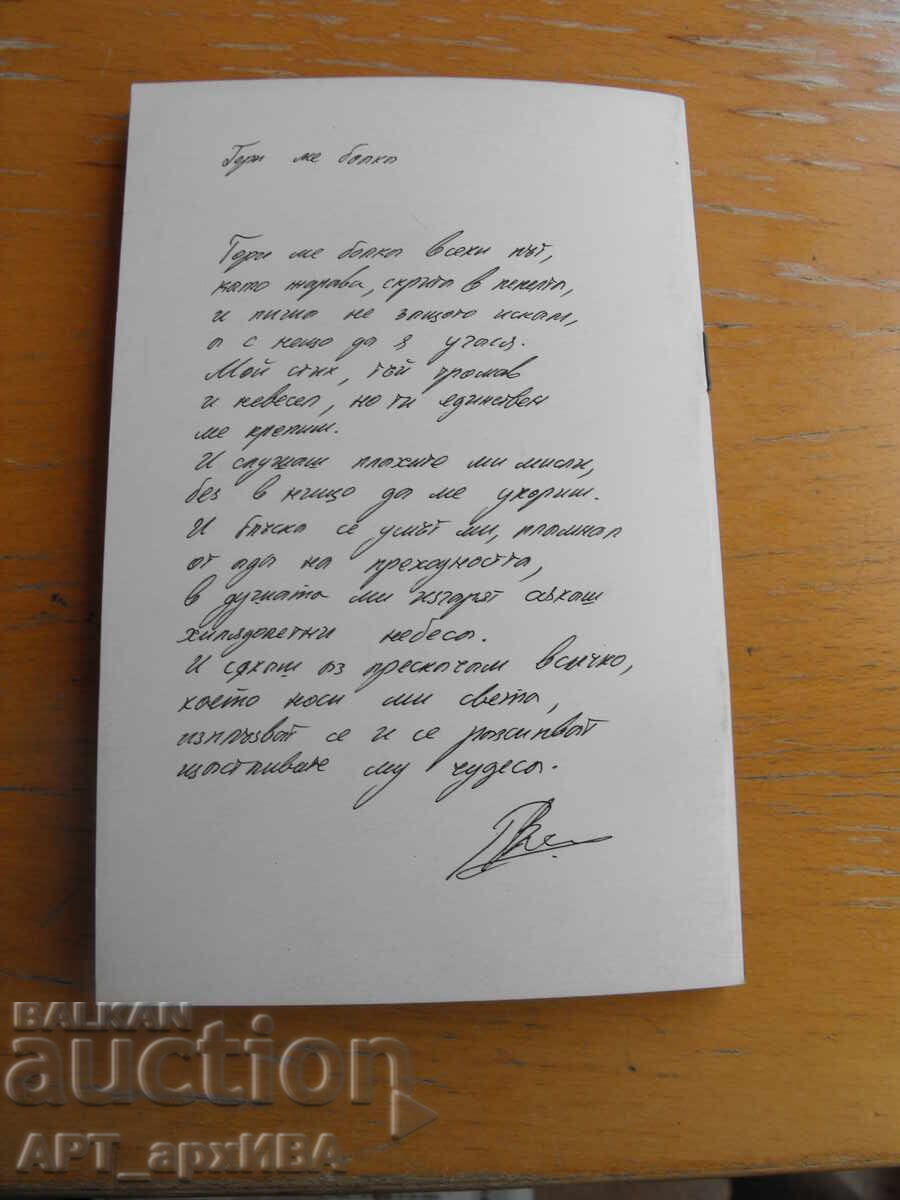 Гори ме болка
Гори ме болка всеки път,
като жарава, скрита в пепелта,
и пиша не защото искам,
а с нещо да я угася.
Мой стих, тъй тромав
и невесел, но ти единствен
ме крепиш.
И слушаш плахите ми мисли,
без в нищо да ме укориш.
И блъска се умът ми, пламнал
от ада на преходността,
в душата ми изгарят сякаш
хилядолетни небеса.
И сякаш аз прескачам всичко,
което носи ми света,
изплъзват се и се разсипват
щастливите му чудеса.
BALKAN
auction
АРТ_архИВА